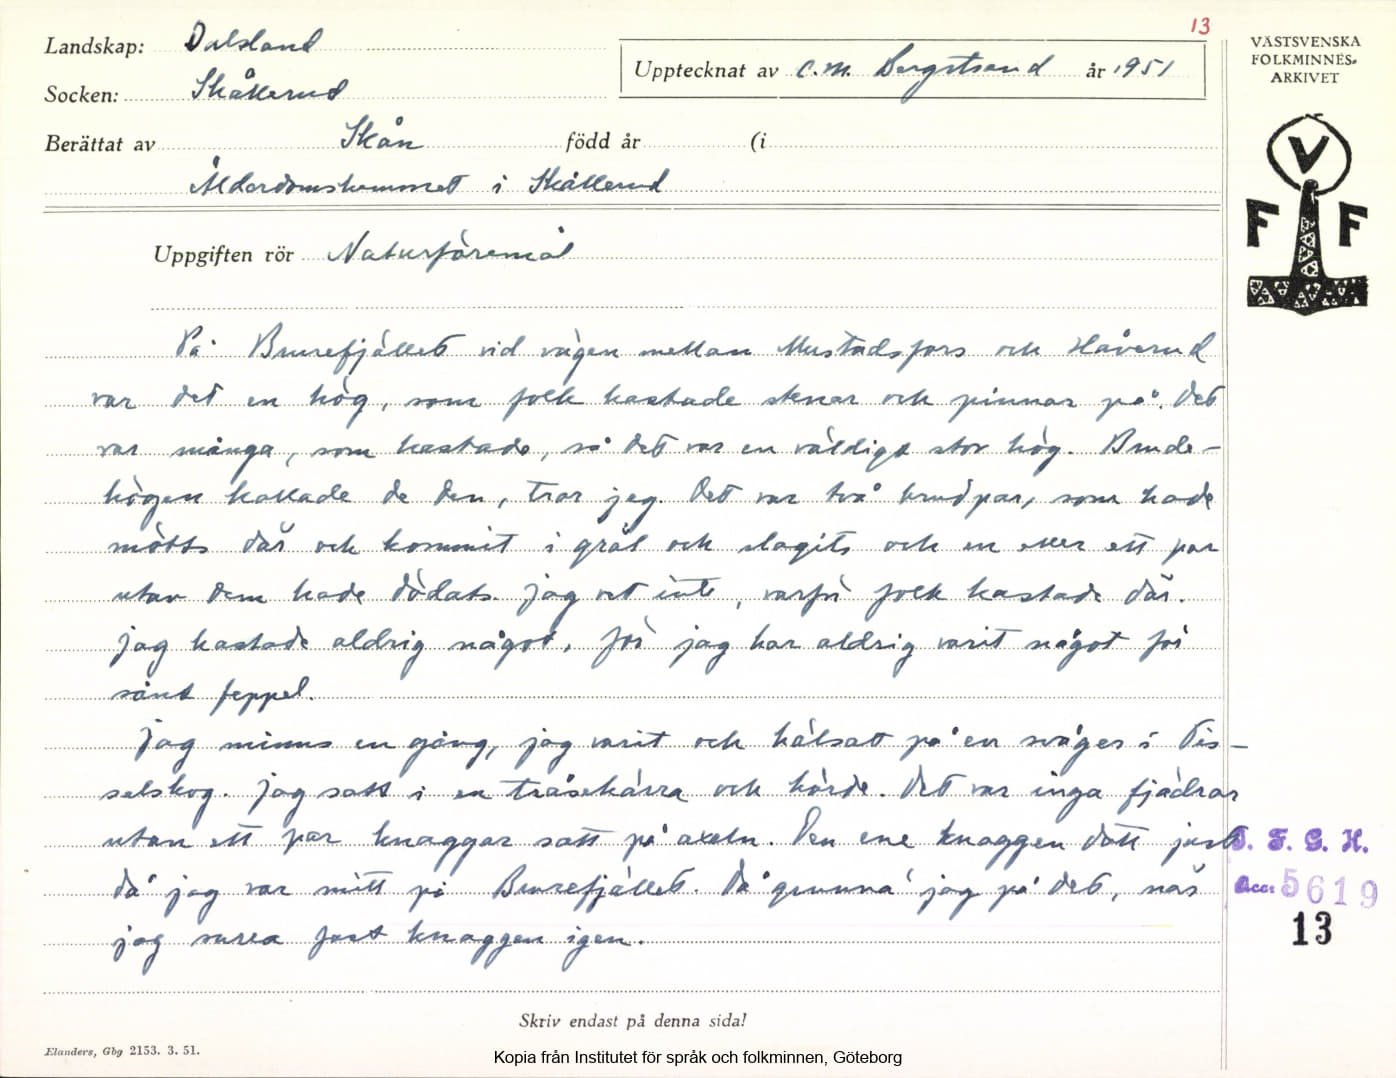 13
Landskap: Dalsland
Upptecknat av C.M. Bergstrand år 1951
VÄSTSVENSKA
FOLKMINNES-
ARKIVET
Socken: Skållerud
Berättat av Skån född år (i
Ålderdomshemmet i Skållerud
V
F F
Uppgiften rör Naturföremål
På Brurefjället vid vägen mellan Mustadsfors och Håverud
var det en hög, som folk kastade stenar och pinnar på. Det
var många, som kastade, så det var en väldiga stor hög. Brude-
högen kallade de den, tror jag. Det var två brudpar, som hade
mötts där och kommit i gräl och slagits och en eller ett par
utav dem hade dödats. Jag vet inte, varför folk kastade där.
Jag kastade aldrig något, för jag har aldrig varit något för
sånt feppel.
Jag minns en gång, jag varit och hälsat på en svåger i Tis-
selskog. Jag satt i en träsekärra och körde. Det var inga fjädrar
utan ett par knaggar satt på axeln. Den ene knaggen datt just
då jag var mitt på Brurefjället. Då grunna' jag på det, när
jag surra fast knaggen igen.
I. F. G. H.
Acc: 5619
13
Skriv endast på denna sida!
Elanders, Gbg 2153. 3. 51.
Kopia från Institutet för språk och folkminnen, Göteborg